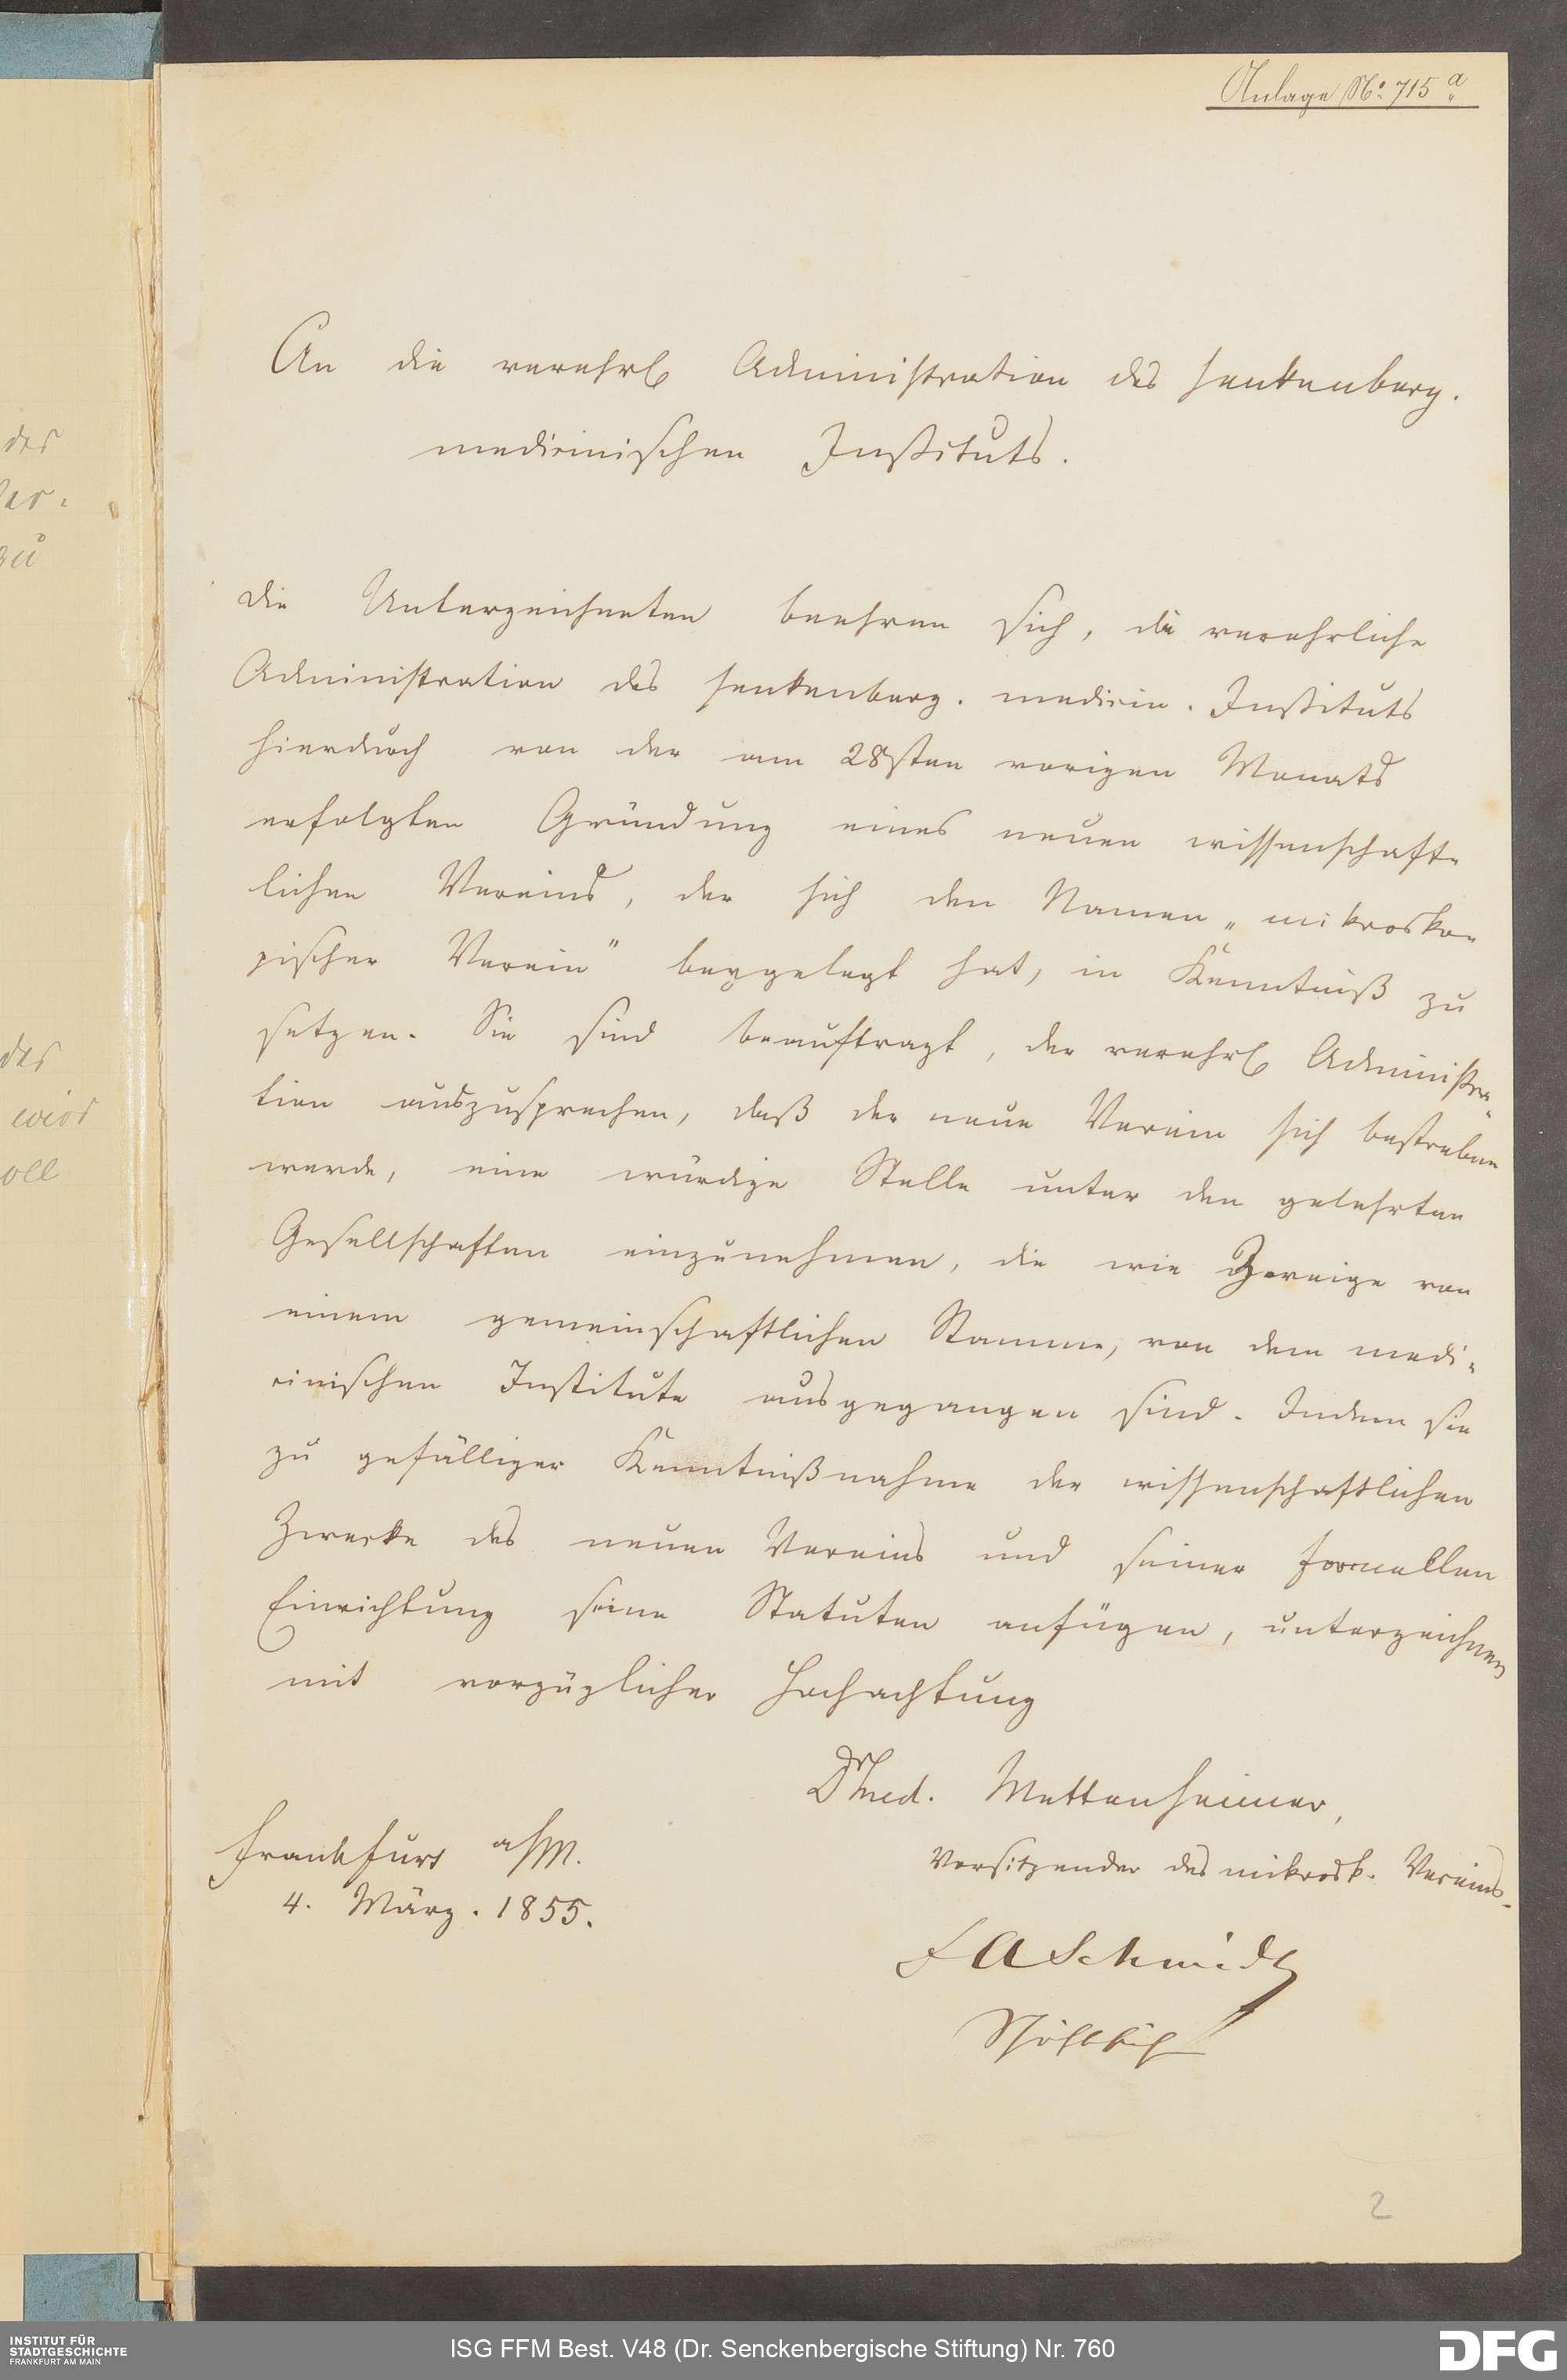 Anlage No. 715 a
An die verehrl. Administration des senkenberg.
medicinischen Instituts.
Die Unterzeichneten beehren sich, die verehrliche
Administration des senkenberg. medicin. Instituts
hierdurch von der am 28sten vorigen Monats
erfolgten Gründung eines neuen wissenschaft-
lichen Vereins, der sich den Namen „mikrosko-
pischer Verein" beygelegt hat, in Kenntniß zu
setzen. Sie sind beauftragt, der verehrl. Administra-
tion auszusprechen, daß der neue Verein sich bestreben
werde, eine würdige Stelle unter den gelehrten
Gesellschaften einzunehmen, die wie Zweige von
einem gemeinschaftlichen Stamme, von dem medi-
cinischen Institute ausgegangen sind. Indem sie
zu gefälliger Kenntnißnahme der wissenschaftlichen
Zwecke des neuen Vereins und seiner formellen
Einrichtung seine Statuten anfügen, unterzeichnen
mit vorzüglicher Hochachtung
Dr med. Mettenheimer,
Vorsitzender des mikrosk. Vereins.
Frankfurt a/M.
4. März. 1855.
F A Schmidt
2
des
zu
des
wird
oll
INSTITUT FÜR
STADTGESCHICHTE
FRANKFURT AM MAIN
ISG FFM Best. V48 (Dr. Senckenbergische Stiftung) Nr. 760
DFG